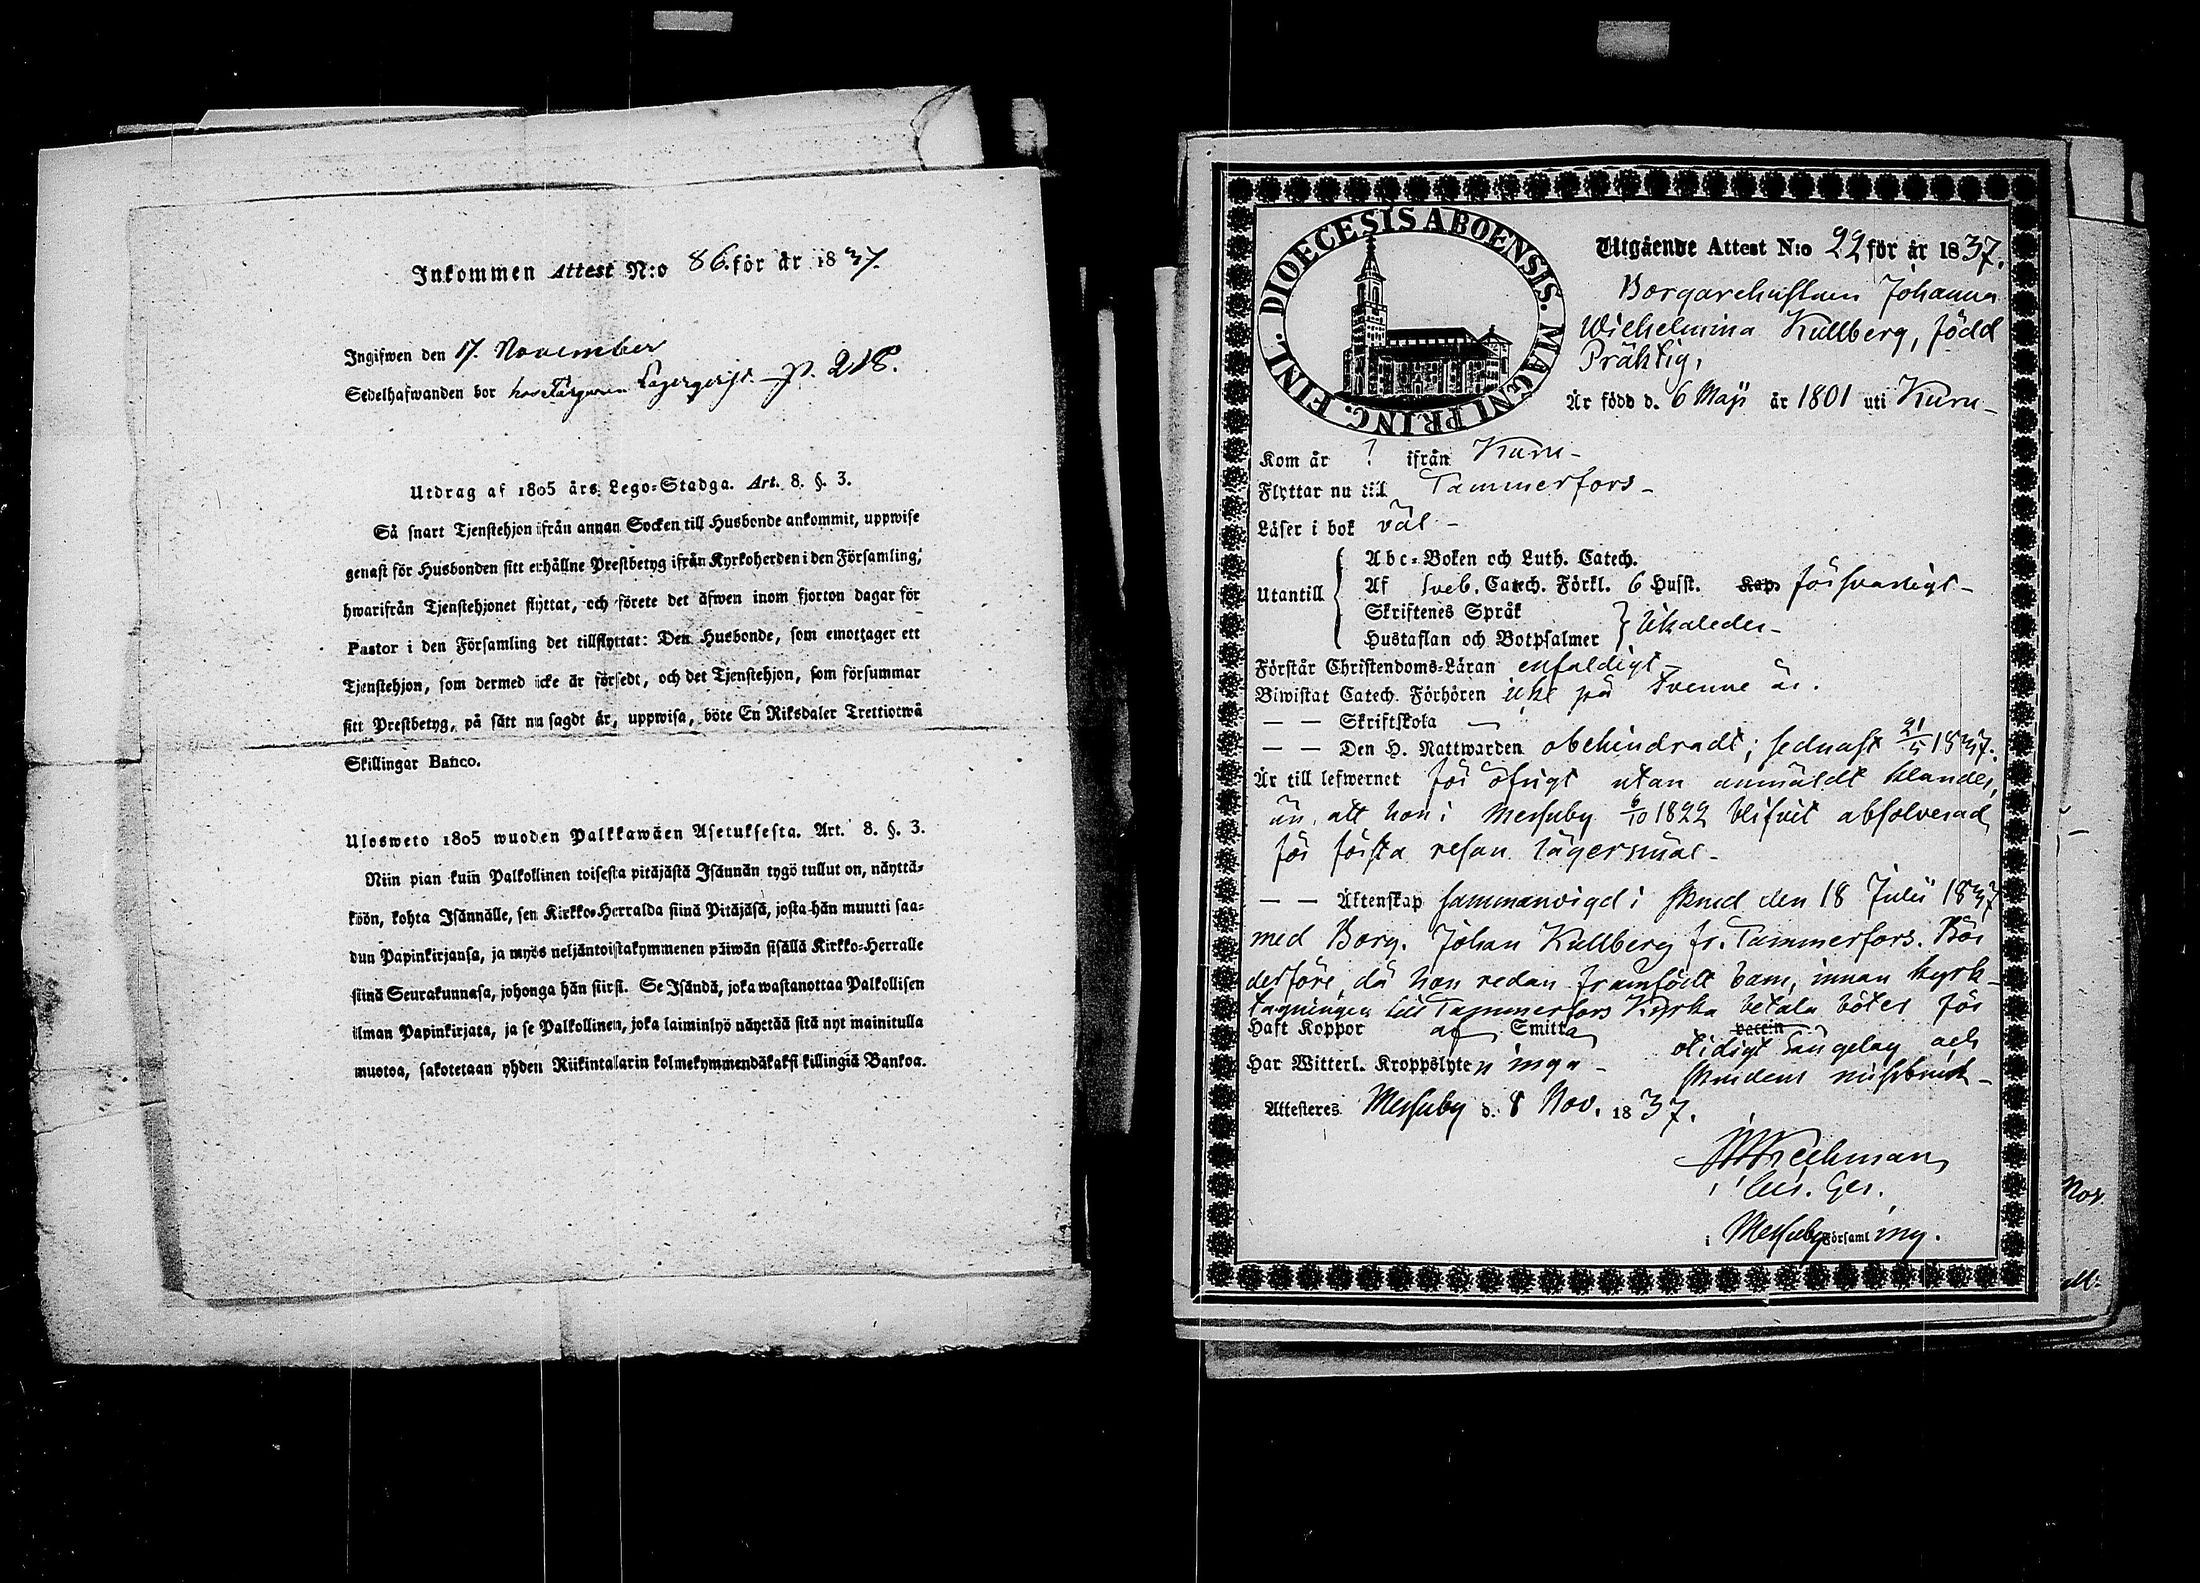 Inkommen Attest N:o 86. för år 1837.
Ingifwen den 17. November
Sedelhafwanden bor hos Färgaren Lagerqvist p. 218.
Utdrag af 1805 års Lego-Stadga. Art. 8. §. 3.
Så snart Tjenstehjon ifrån annan Socken till Husbonde ankommit, uppwise
genast för Husbonden sitt erhållne Prestbetyg ifrån Kyrkoherden i den Församling,
hwarifrån Tjenstehjonet flyttat, och förete det äfwen inom fjorton dagar för
Pastor i den Församling det tillflyttat: Den Husbonde, som emottager ett
Tjenstehjon, som dermed icke är försedt, och det Tjenstehjon, som försummar
sitt Prestbetyg, på sätt nu sagdt är, uppwisa, böte En Riksdaler Trettiotwå
Skillingar Banco.
Ulosweto 1805 wuoden Palkkawäen Asetuksesta. Art. 8. §. 3.
Niin pian kuin Palkollinen toisesta pitäjästä Isännän tygö tullut on, näyttä-
köön, kohta Isännälle, sen Kirkko-Herralda siinä Pitäjäsä, josta hän muutti saa-
dun Papinkirjansa, ja myös neljäntoistakymmenen päiwän sisällä Kirkko-Herralle
siinä Seurakunnasa, johonga hän siirsi. Se Isändä, joka wastanottaa Palkollisen
ilman Papinkirjata, ja se Palkollinen, joka laiminlyö näyttää sitä nyt mainitulla
muotoa, sakotetaan yhden Riikintalarin kolmekymmendäkaksi killingiä Bankoa.
DIOECESIS ABOENSIS. MAGNI PRINC. FINL.
Utgående Attest N:o 22 för år 1837.
Borgarehustrun Johanna
Wilhelmina Kullberg, född
Präktig,
Är född d. 6 Maji år 1801 uti Kuru -
Kom år ? ifrån Kuru -
Flyttar nu till Tammerfors -
Läser i bok väl -
Utantill
Abc-Boken och Luth. Catech.
Af Sveb. Catech. Förkl. 6 Husst. Kap. försvarligt -
Skriftenes Språk
Hustaflan och Botpsalmer
Förstår Christendoms-Läran enfaldigt -
Biwistat Catech. Förhören icke på tvenne år.
— — Skriftskola —
— — Den H. Nattwarden obehindradt; sednast 21/5 1837.
Är till lefwernet för öfrigt utan anmäldt klander,
än, att hon i Messuby 6/10 1822 blifvit absolverad
för första resan lägersmål -
— — Äktenskap sammanvigd i Skmd den 18 Julii 1837
med Borg. Johan Kullberg fr. Tammerfors. Bör
derföre, då hon redan framfödt barn, innan kyrk-
tagningen till Tammerfors Kyrka betala böter för
Haft Koppor af Smitta vaccin
otidigt Sängelag och
Har Witterl. Kroppslyten inga -
Skrudens missbruk -
Attesteres Messuby d. 8 Nov. 1837.
i Messuby Församling.
Nov.